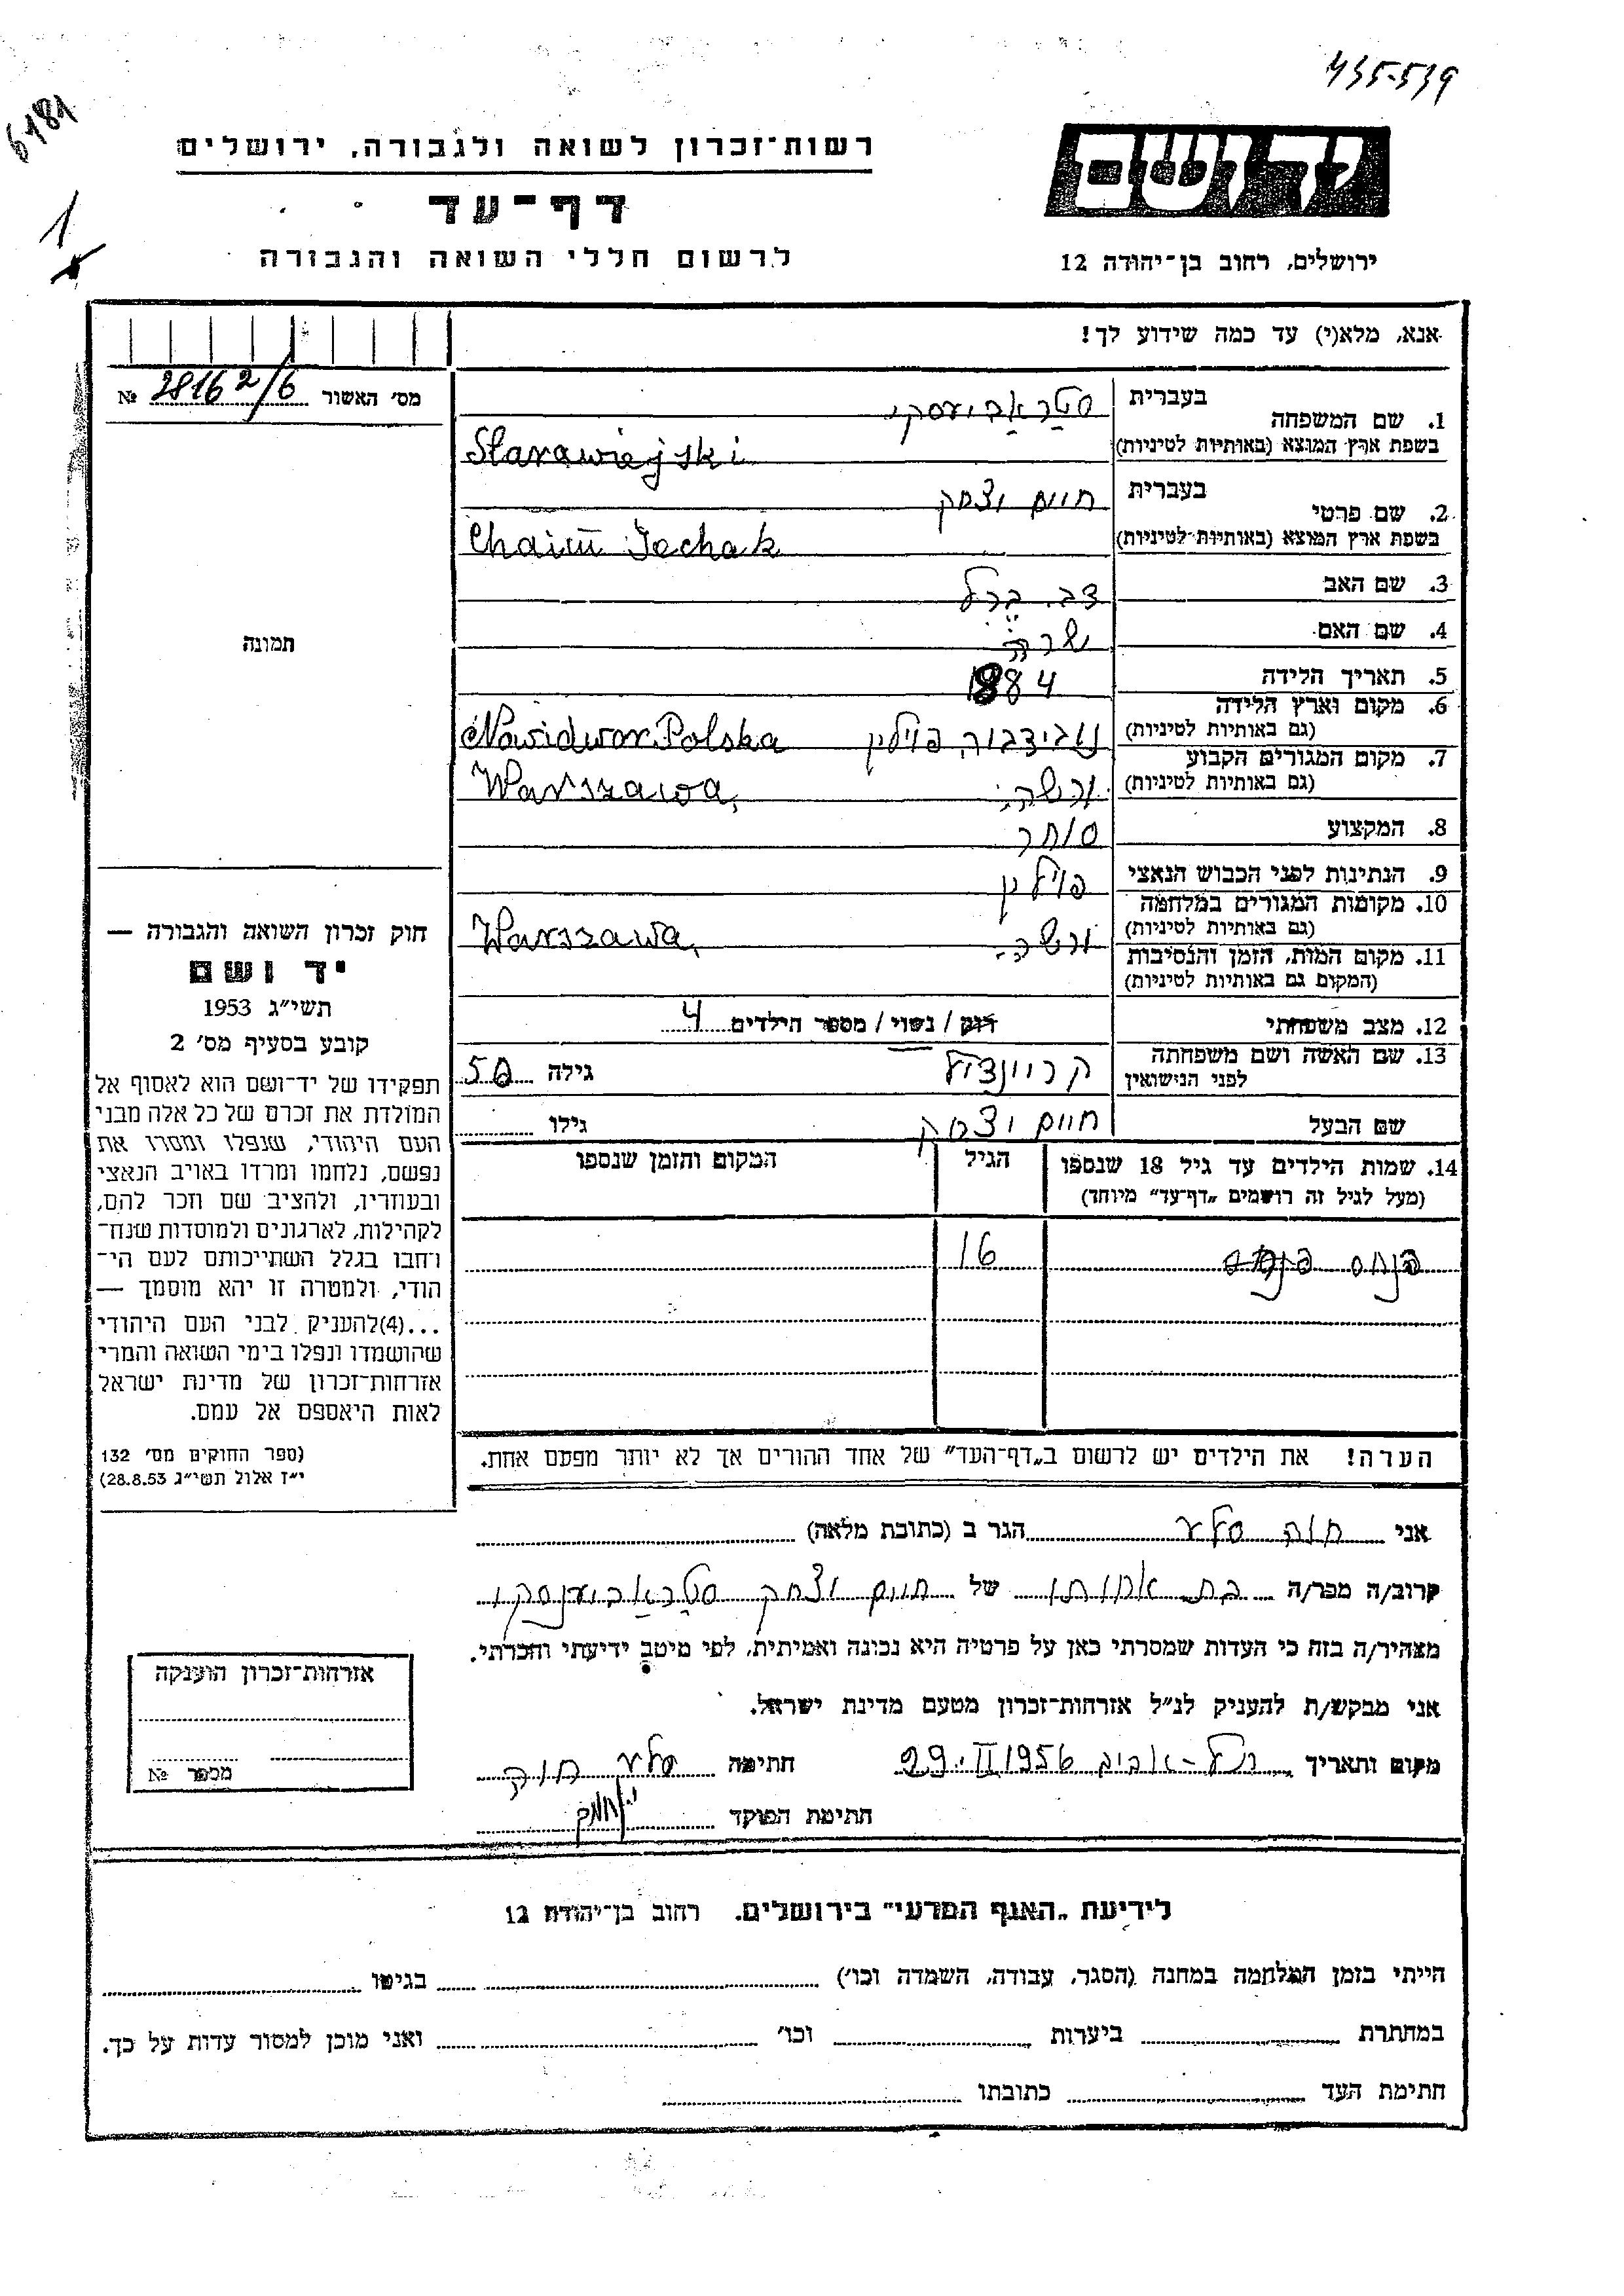 435-539
6181
1
יד ושם
רשות־זכרון לשואה ולגבורה, ירושלים
דף־עד
לרשום חללי השואה והגבורה
ירושלים, רחוב בן־יהודה 12
אנא, מלא(י) עד כמה שידוע לך!
מס׳ האשור 28162/6 №
1. שם המשפחה בעברית
בשפת ארץ המוצא (באותיות לטיניות) Starawiejski
2. שם פרטי בעברית חיים יצחק
בשפת ארץ המוצא (באותיות לטיניות) Chaim Icchak
3. שם האב צבי בערל
4. שם האם שרה
5. תאריך הלידה 1884
6. מקום וארץ הלידה נובידבור פוילין Nowidwor Polska
(גם באותיות לטיניות)
7. מקום המגורים הקבוע ורשה Warszawa
(גם באותיות לטיניות)
8. המקצוע סוחר
9. הנתינות לפני הכבוש הנאצי פוילין
10. מקומות המגורים במלחמה
(גם באותיות לטיניות) ורשה Warszawa
11. מקום המות, הזמן והנסיבות
(המקום גם באותיות לטיניות)
12. מצב משפחתי רווק / נשוי / מספר הילדים 4
13. שם האשה ושם משפחתה
לפני הנישואין גילה 50
שם הבעל חיים יצחק גילו
14. שמות הילדים עד גיל 18 שנספו הגיל המקום והזמן שנספו
(מעל לגיל זה רושמים „דף־עד״ מיוחד)
פנחס 16
הערה! את הילדים יש לרשום ב„דף־העד״ של אחד ההורים אך לא יותר מפעם אחת.
תמונה
חוק זכרון השואה והגבורה —
יד ושם
תשי״ג 1953
קובע בסעיף מס׳ 2
תפקידו של יד־ושם הוא לאסוף אל
המולדת את זכרם של כל אלה מבני
העם היהודי, שנפלו ומסרו את
נפשם, נלחמו ומרדו באויב הנאצי
ובעוזריו, ולהציב שם וזכר להם,
לקהילות, לארגונים ולמוסדות שנח־
רחבו בגלל השתייכותם לעם הי־
הודי, ולמטרה זו יהא מוסמך —
...(4)להעניק לבני העם היהודי
שהושמדו ונפלו בימי השואה והמרי
אזרחות־זכרון של מדינת ישראל
לאות היאספם אל עמם.
(ספר החוקים מס׳ 132
י״ז אלול תשי״ג 28.8.53)
אני חוה סלע הגר ב (כתובת מלאה)
קרוב/ה מכר/ה בת אחותו של חיים יצחק
מצהיר/ה בזה כי העדות שמסרתי כאן על פרטיה היא נכונה ואמיתית, לפי מיטב ידיעתי והכרתי.
אני מבקש/ת להעניק לנ״ל אזרחות־זכרון מטעם מדינת ישראל.
מקום ותאריך תל-אביב 29.II.1956 חתימה סלע חוה
חתימת הפוקד
אזרחות־זכרון הוענקה
מספר №
לידיעת „האגף המדעי״ בירושלים. רחוב בן־יהודה 12
הייתי בזמן המלחמה במחנה (הסגר, עבודה, השמדה וכו׳) בגיטו
במחתרת ביערות וכו׳ ואני מוכן למסור עדות על כך.
חתימת העד כתובתו